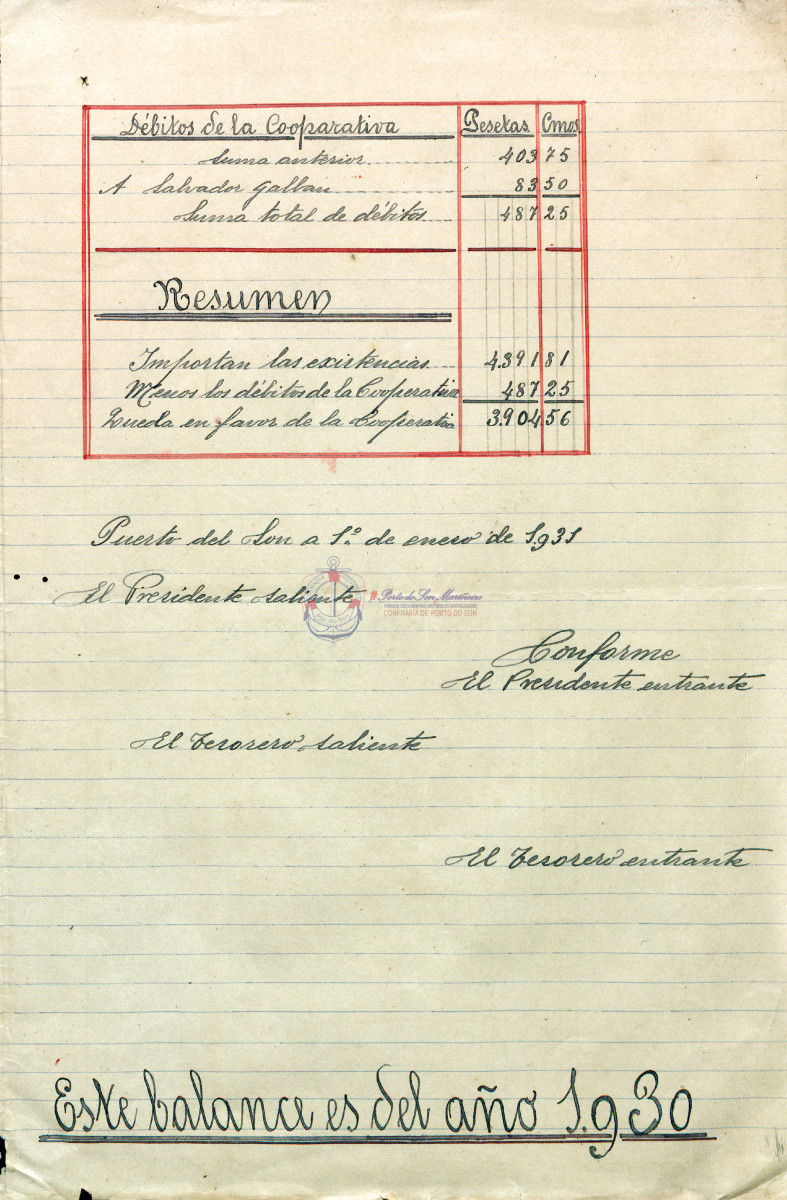 Débitos de la Cooparativa Pesetas Cmos
Suma anterior 403 75
A Salvador Gallan 83 50
Suma total de débitos 487 25
Resumen
Importan las existencias 4.391 81
Menos los débitos de la Cooperativa 487 25
Queda en favor de la Cooperativa 3.904 56
Puerto del Son a 1º de enero de 1.931
El Presidente saliente
Porto do Son Mariñeiro
CONFRARÍA DE PORTO DO SON
Conforme
El Presidente entrante
El Tesorero saliente
El Tesorero entrante
Este balance es del año 1.930